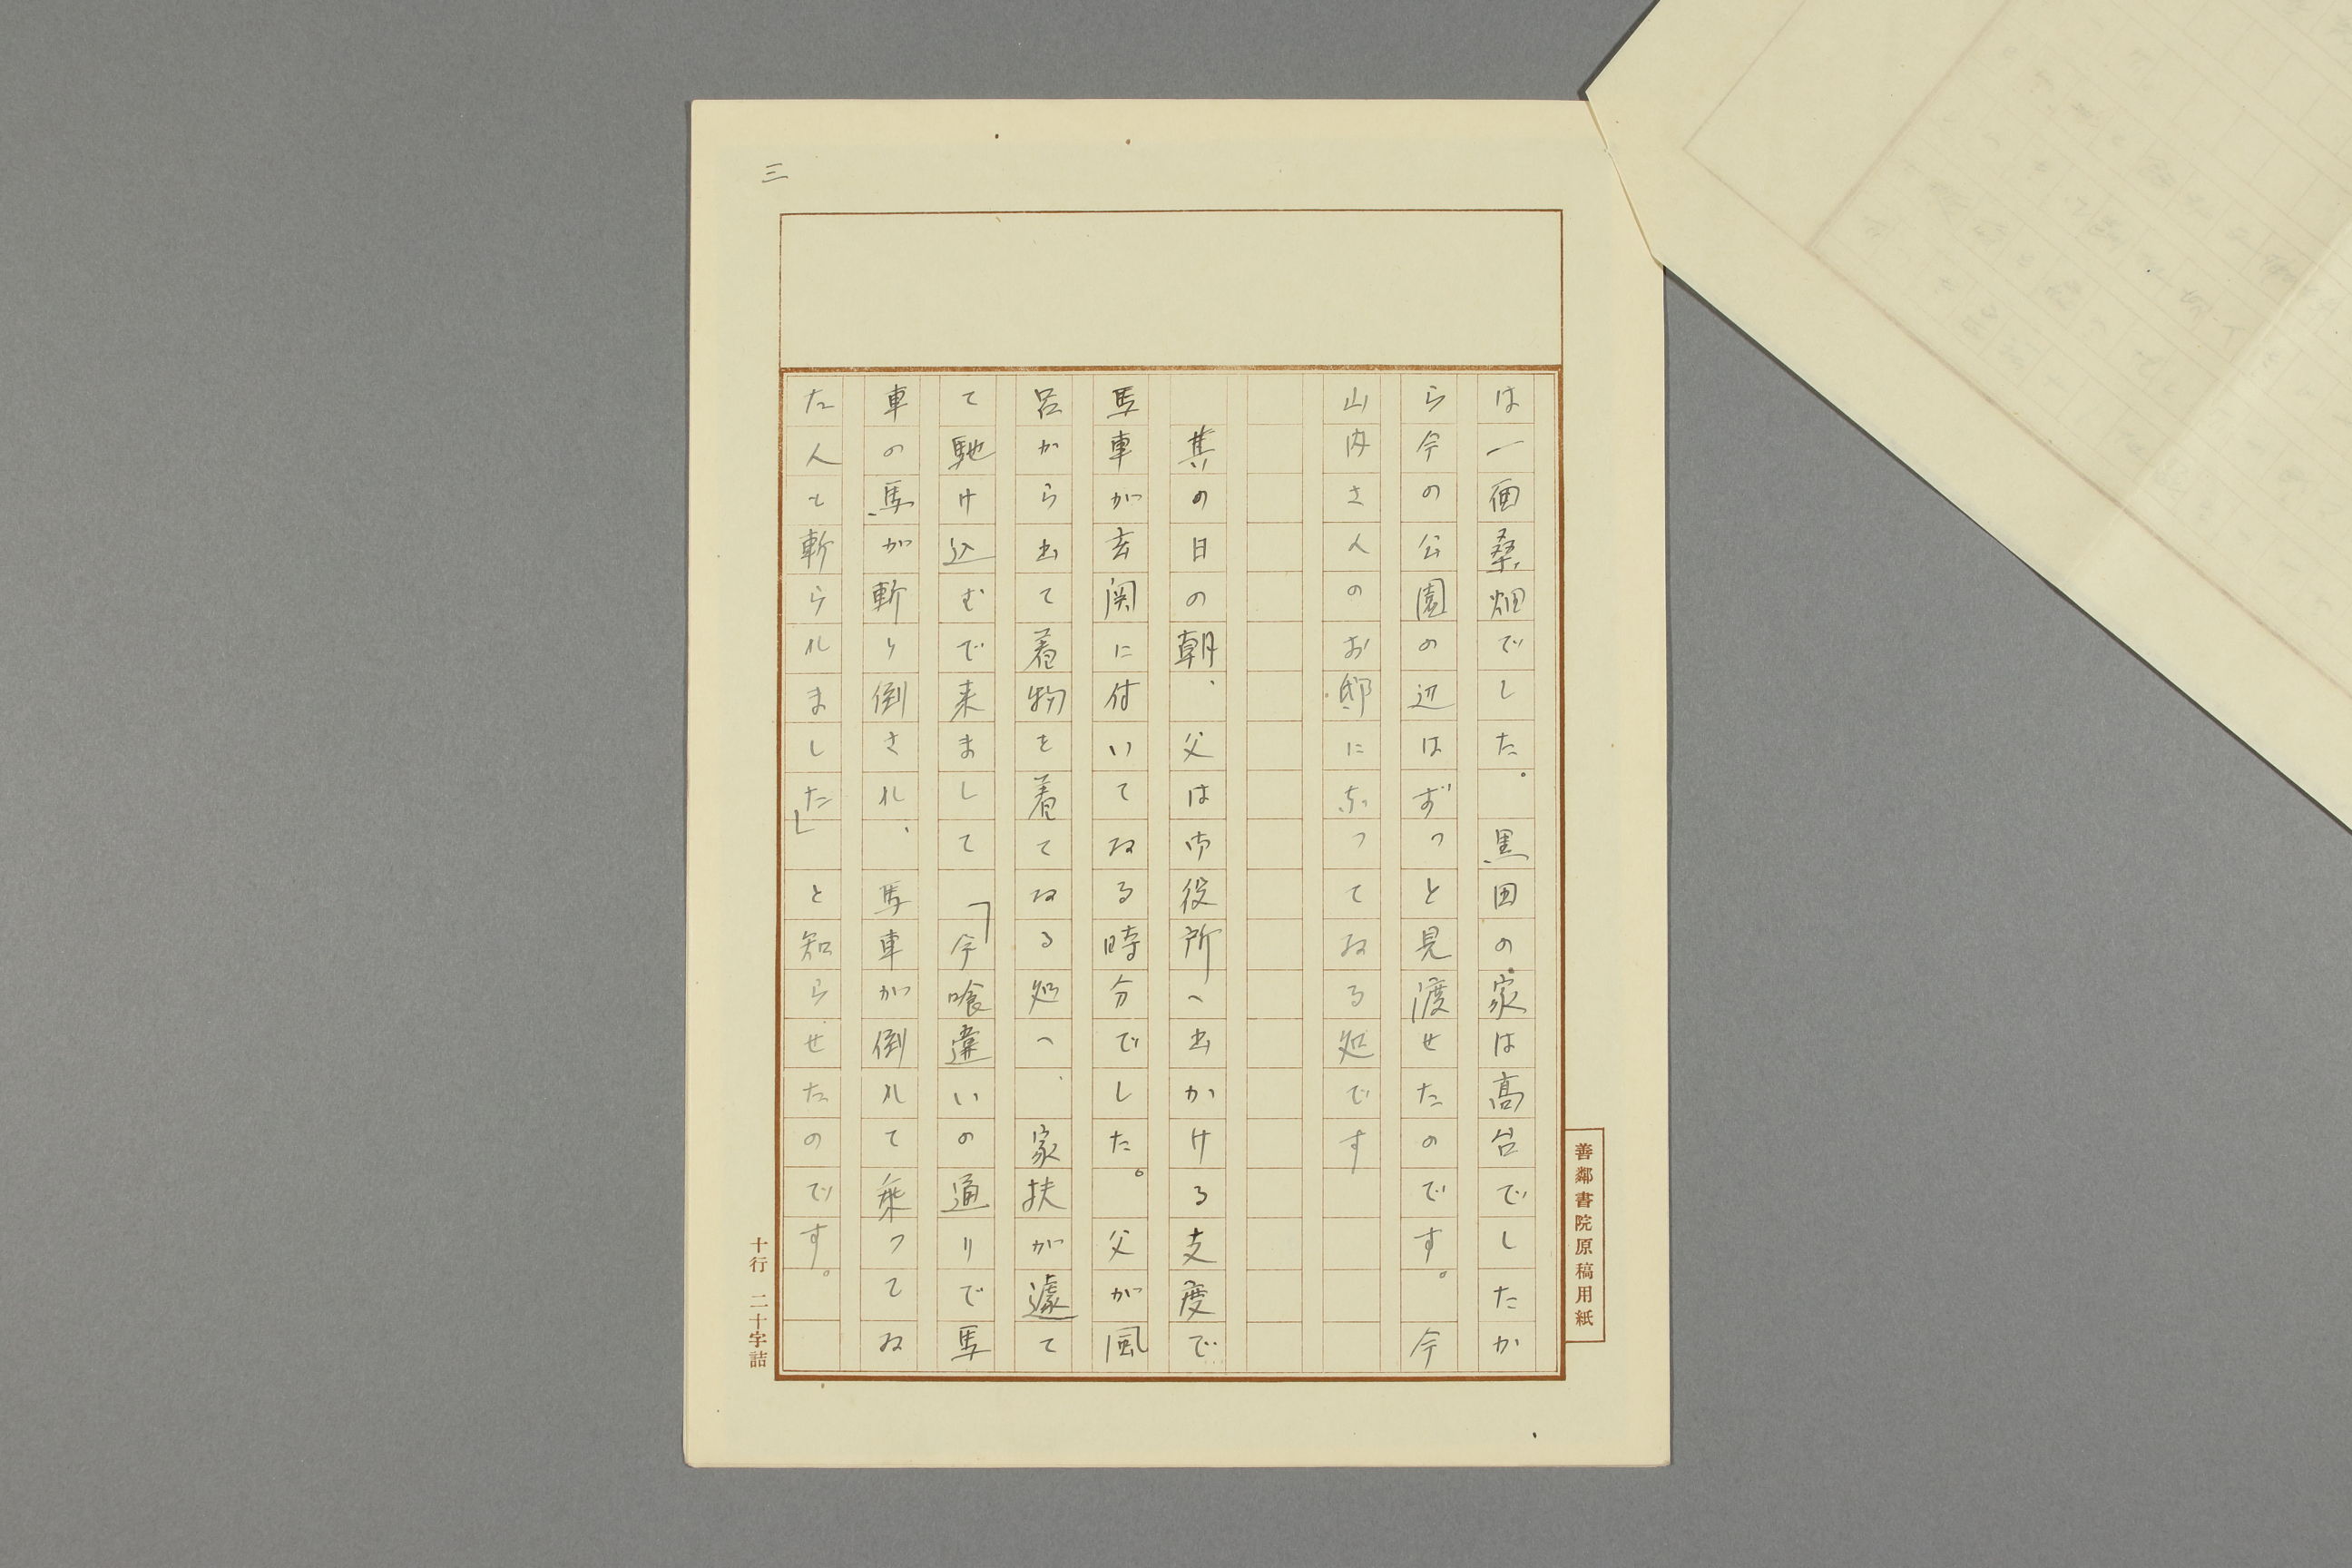 三
は一面桑畑でした。黒田の家は高台でしたか
ら今の公園の辺はずっと見渡せたのです。今
山内さんのお邸になってゐる処です
其の日の朝、父は御役所へ出かける支度で
馬車が玄関に付いてゐる時分でした。父が風
呂から出て着物を着てゐる処へ、家扶が遽て
て馳け込むで来まして「今喰違いの通りで馬
車の馬が斬り倒され、馬車が倒れて乗ってゐ
た人も斬られました」と知らせたのです。
善鄰書院原稿用紙
十行 二十字詰